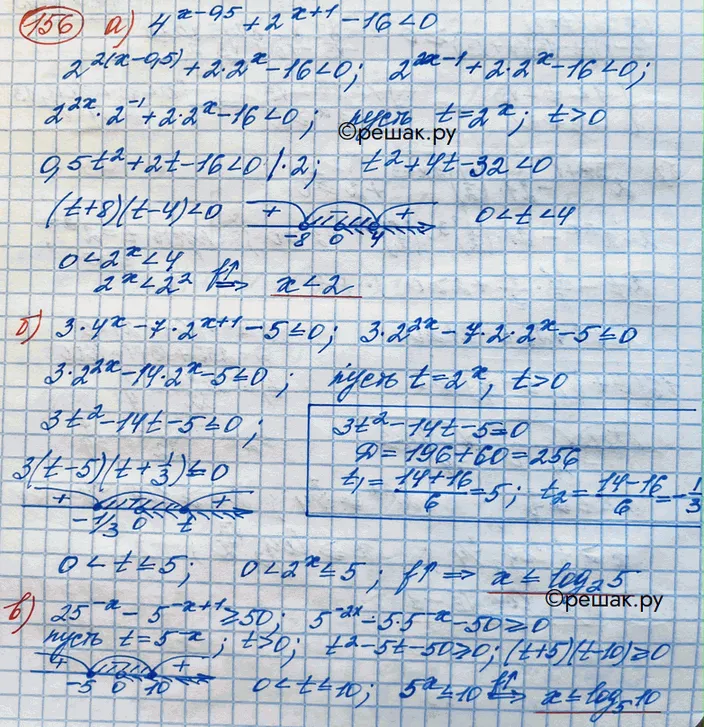 156 а) 4^(x-0,5) + 2^(x+1) - 16 < 0
2^(2(x-0,5)) + 2·2^x - 16 < 0; 2^(2x-1) + 2·2^x - 16 < 0;
2^(2x)·2^(-1) + 2·2^x - 16 < 0; пусть t = 2^x; t > 0
©решак.ру
0,5t² + 2t - 16 < 0 |·2; t² + 4t - 32 < 0
(t+8)(t-4) < 0 + + 0 < t < 4
-8 0 4
0 < 2^x < 4
2^x < 2² f↑ ⟹ x < 2
б) 3·4^x - 7·2^(x+1) - 5 ≤ 0; 3·2^(2x) - 7·2·2^x - 5 ≤ 0
3·2^(2x) - 14·2^x - 5 ≤ 0; пусть t = 2^x, t > 0
3t² - 14t - 5 ≤ 0;
3(t-5)(t+1/3) ≤ 0
+ +
-1/3 0 t
3t² - 14t - 5 = 0
D = 196 + 60 = 256
t₁ = (14+16)/6 = 5; t₂ = (14-16)/6 = -1/3
0 < t ≤ 5; 0 < 2^x ≤ 5; f↑ ⟹ x ≤ log₂5
©решак.ру
в) 25^(-x) - 5^(-x+1) ≥ 50; 5^(-2x) - 5·5^(-x) - 50 ≥ 0
пусть t = 5^(-x); t > 0; t² - 5t - 50 ≥ 0; (t+5)(t-10) ≥ 0
+ +
-5 0 10 0 < t ≤ 10; 5^x ≤ 10 f↑ ⟹ x ≤ log₅10